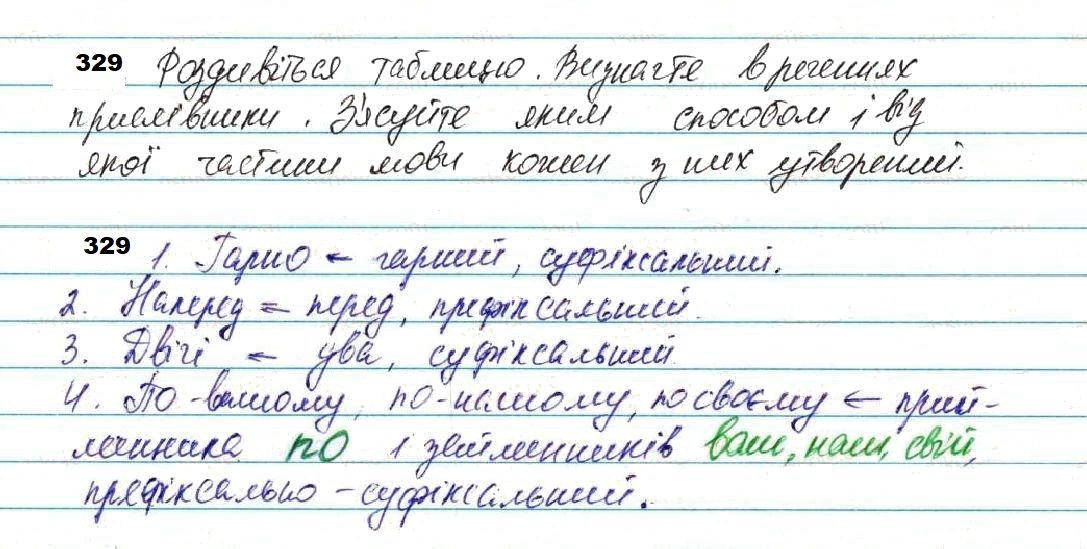 329 Роздивіться таблицю. Визначте в реченнях
прислівники. З'ясуйте яким способом і від
якої частини мови кожен з них утворений.
329 1. Гарно ← гарний, суфіксальний.
2. Наперед ← перед, префіксальний.
3. Двічі ← два, суфіксальний
4. По-вашому, по-нашому, по своєму ← прий-
менника по і займенників ваш, наш, свій,
префіксально-суфіксальний.